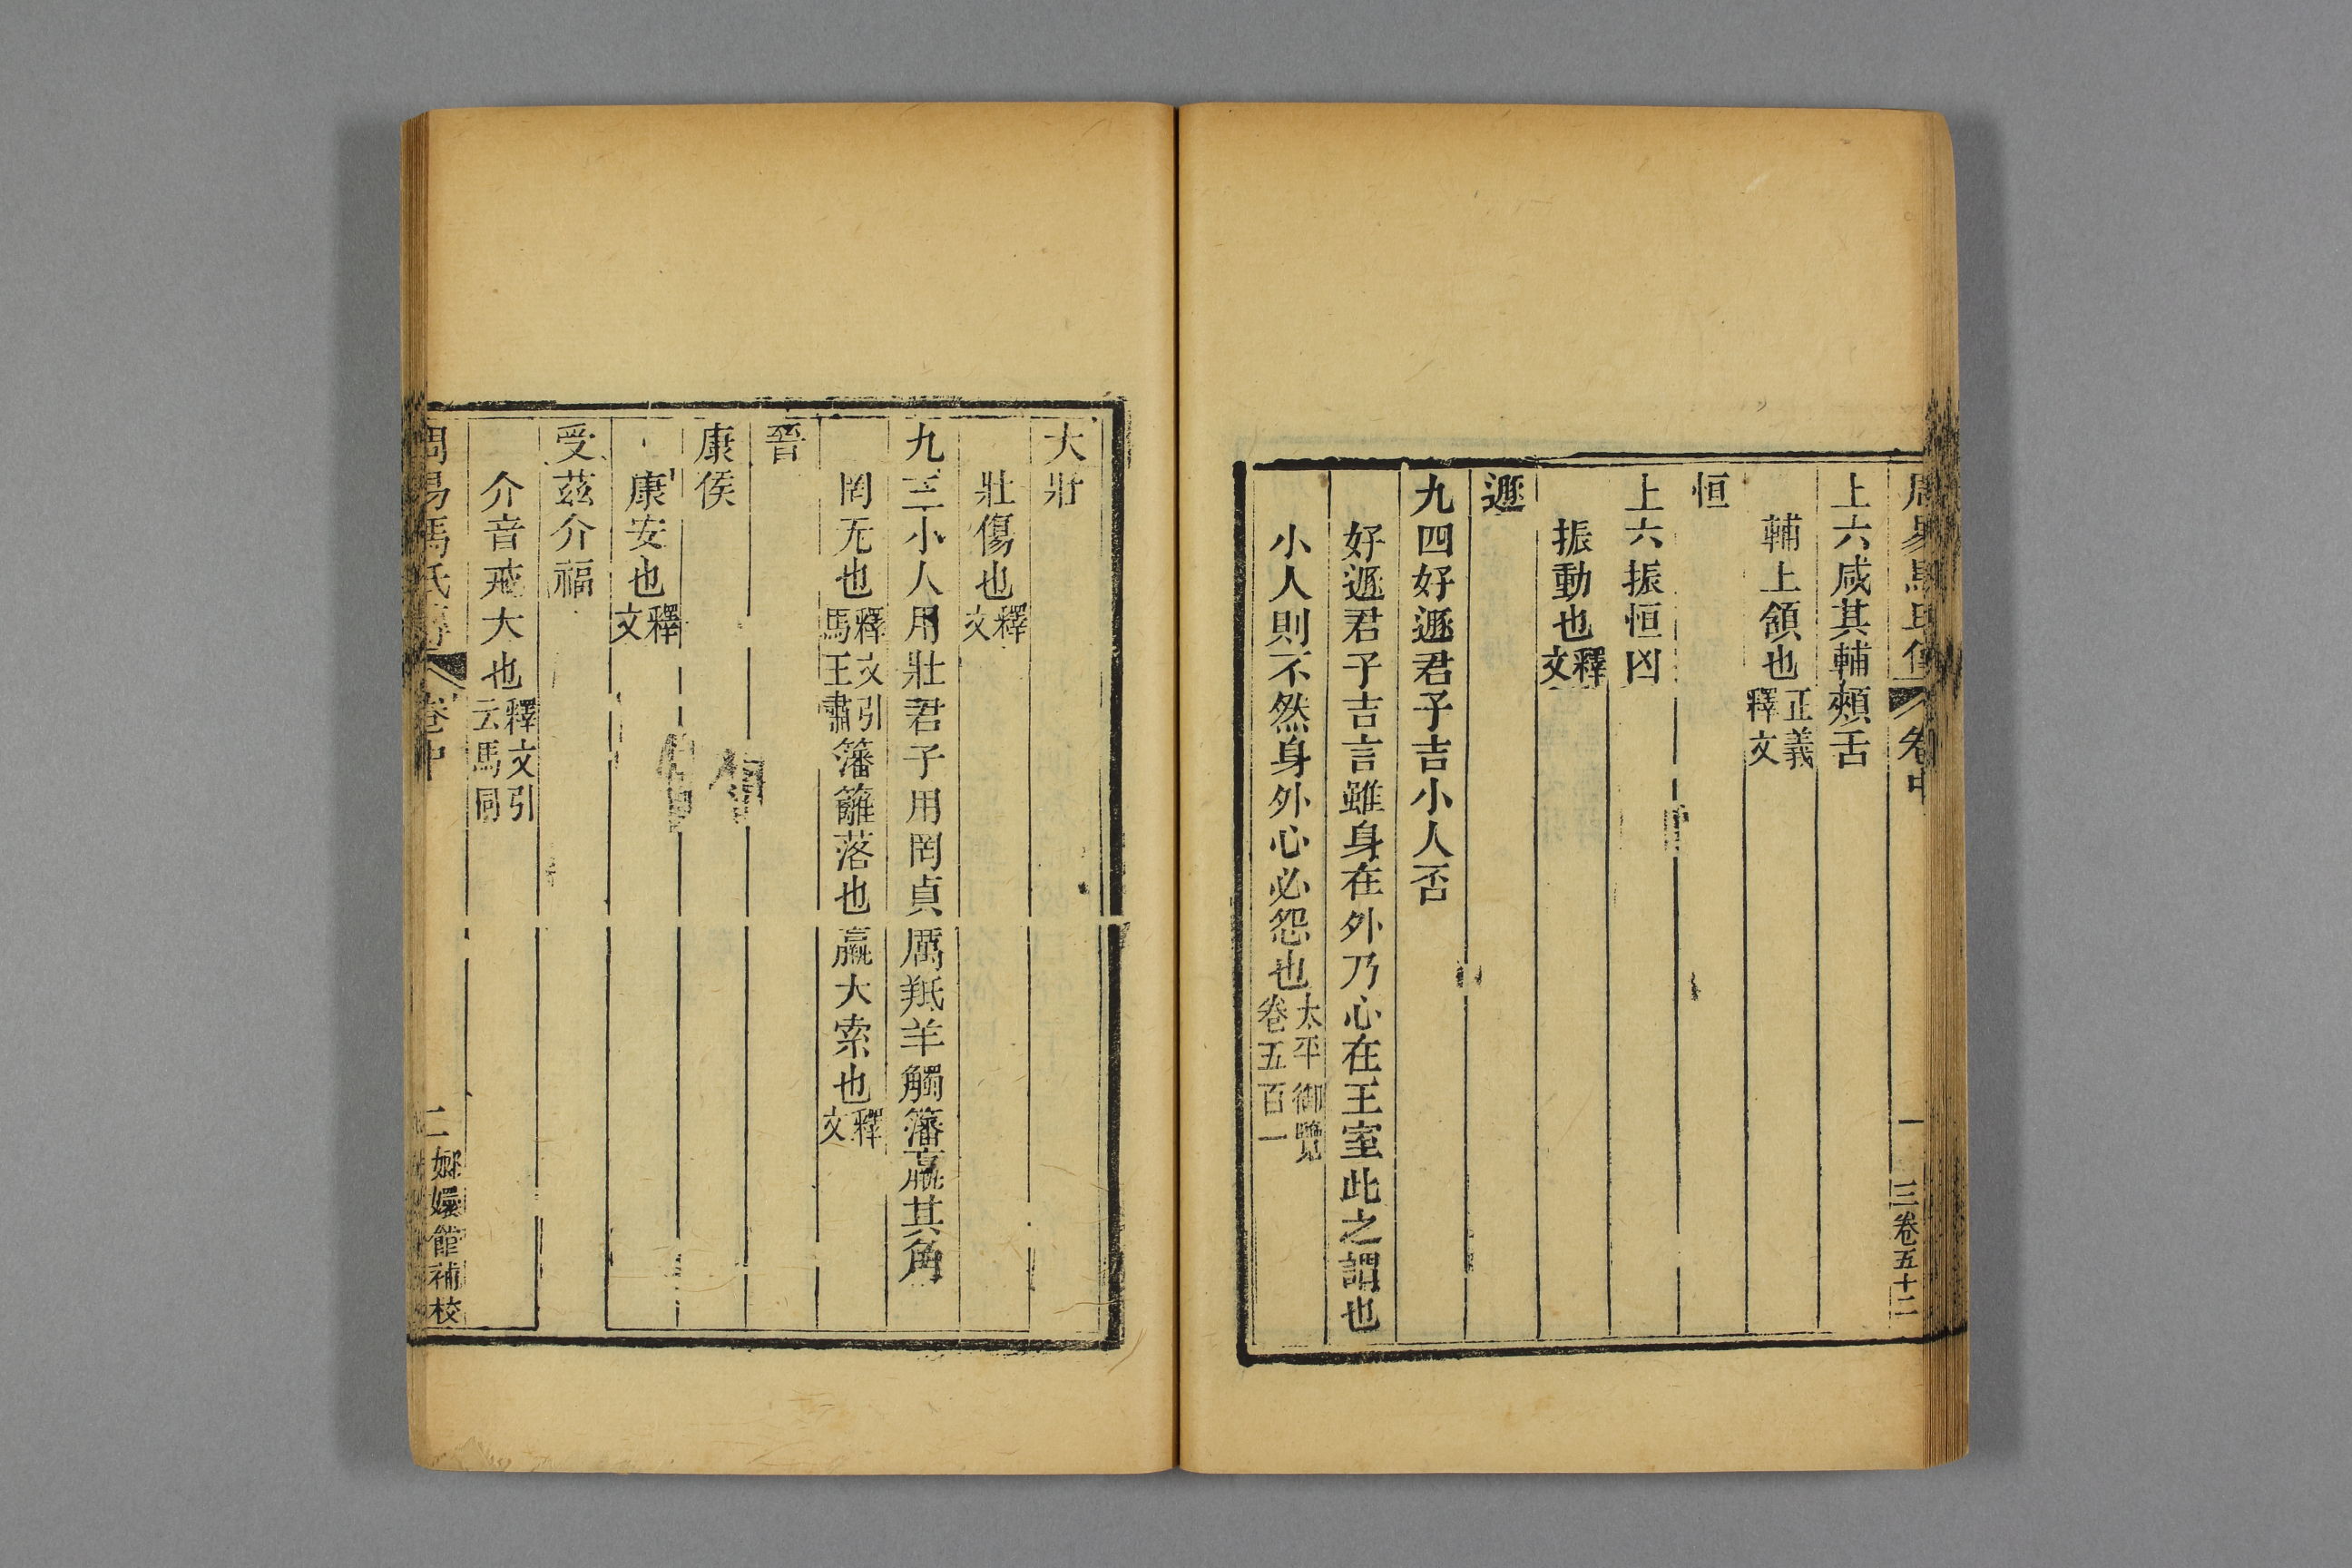 周易馬氏傳 卷中 一 三卷五十二
上六咸其輔頰舌
輔上頷也正義釋文
恒
上六振恒凶
振動也釋文
遯
九四好遯君子吉小人否
好遯君子吉言雖身在外乃心在王室此之謂也
小人則不然身外心必怨也太平御覽卷五百一
大壯
壯傷也釋文
九三小人用壯君子用罔貞厲羝羊觸藩羸其角
罔无也釋文引馬王肅籓籬落也羸大索也釋文
晉
康侯
康安也釋文
受茲介福
介音戒大也釋文引云馬同
周易馬氏傳 卷中 二 嫏嬛館補校